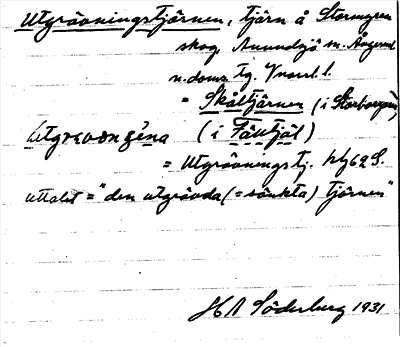 Utgrävningstjärnen, tjärn å Stormyren
skog, Anundsjö sn. Ångerml.
n. doms Tg. Vnorrl. l.
= Skåltjärnen (i Storbergsm)
(i Fättjäl)
= Utgrävningstj. hbg 62 S.
uttalet = "den utgrävda (= sänkta) tjärnen"
Söderburg 1931